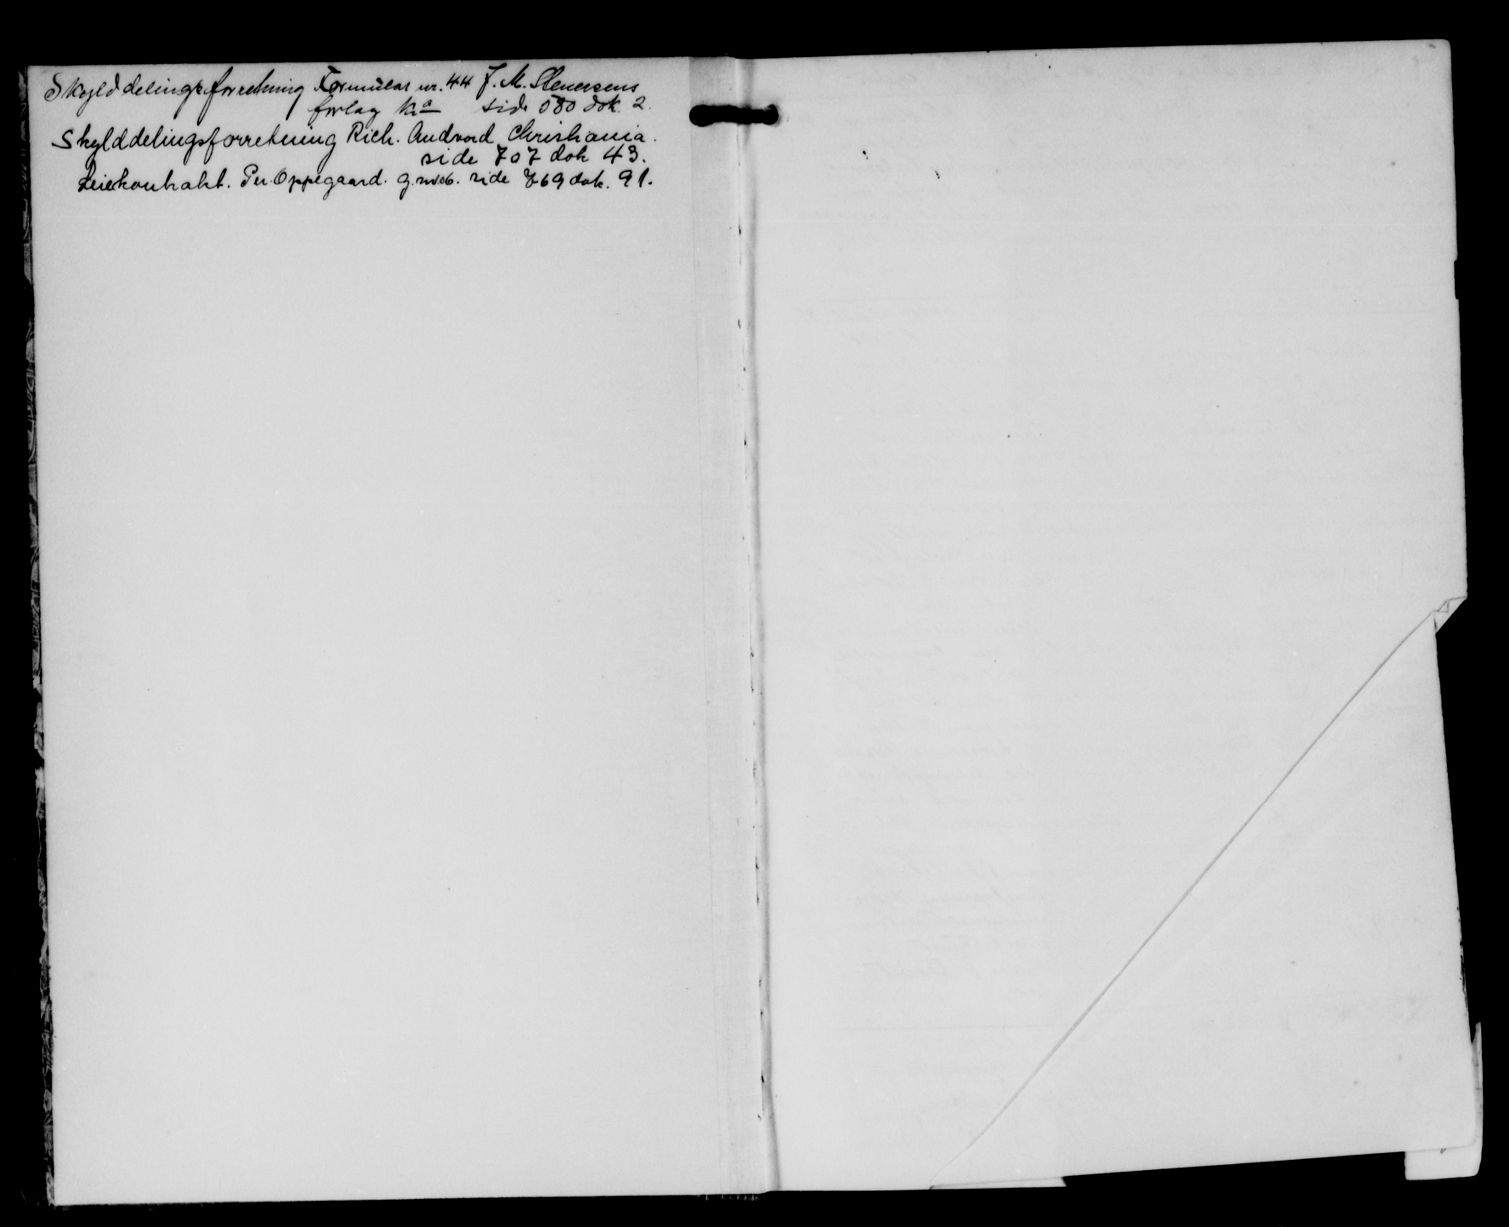 Skylddelingsforretning Formular nr. 44 J. M. Stenersens
forlag Kra side 080 dok. 2.
Skylddelingsforretning Rich. Andvord Christiania.
side 707 dok 43.
Leiekontrakt. Per Oppegaard. side 769 dok. 91.